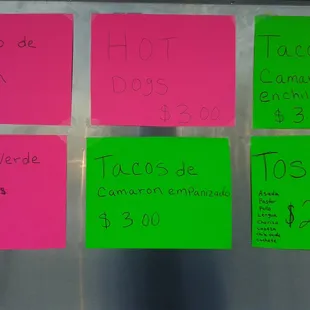 o de
HOT
Dogs
$3.00
Taco
Camaro
enchil
$3
Verde
Tacos de
camaron empanizado
$3.00
TOS
Asada
Pastor
Pollo
Lengua
$2